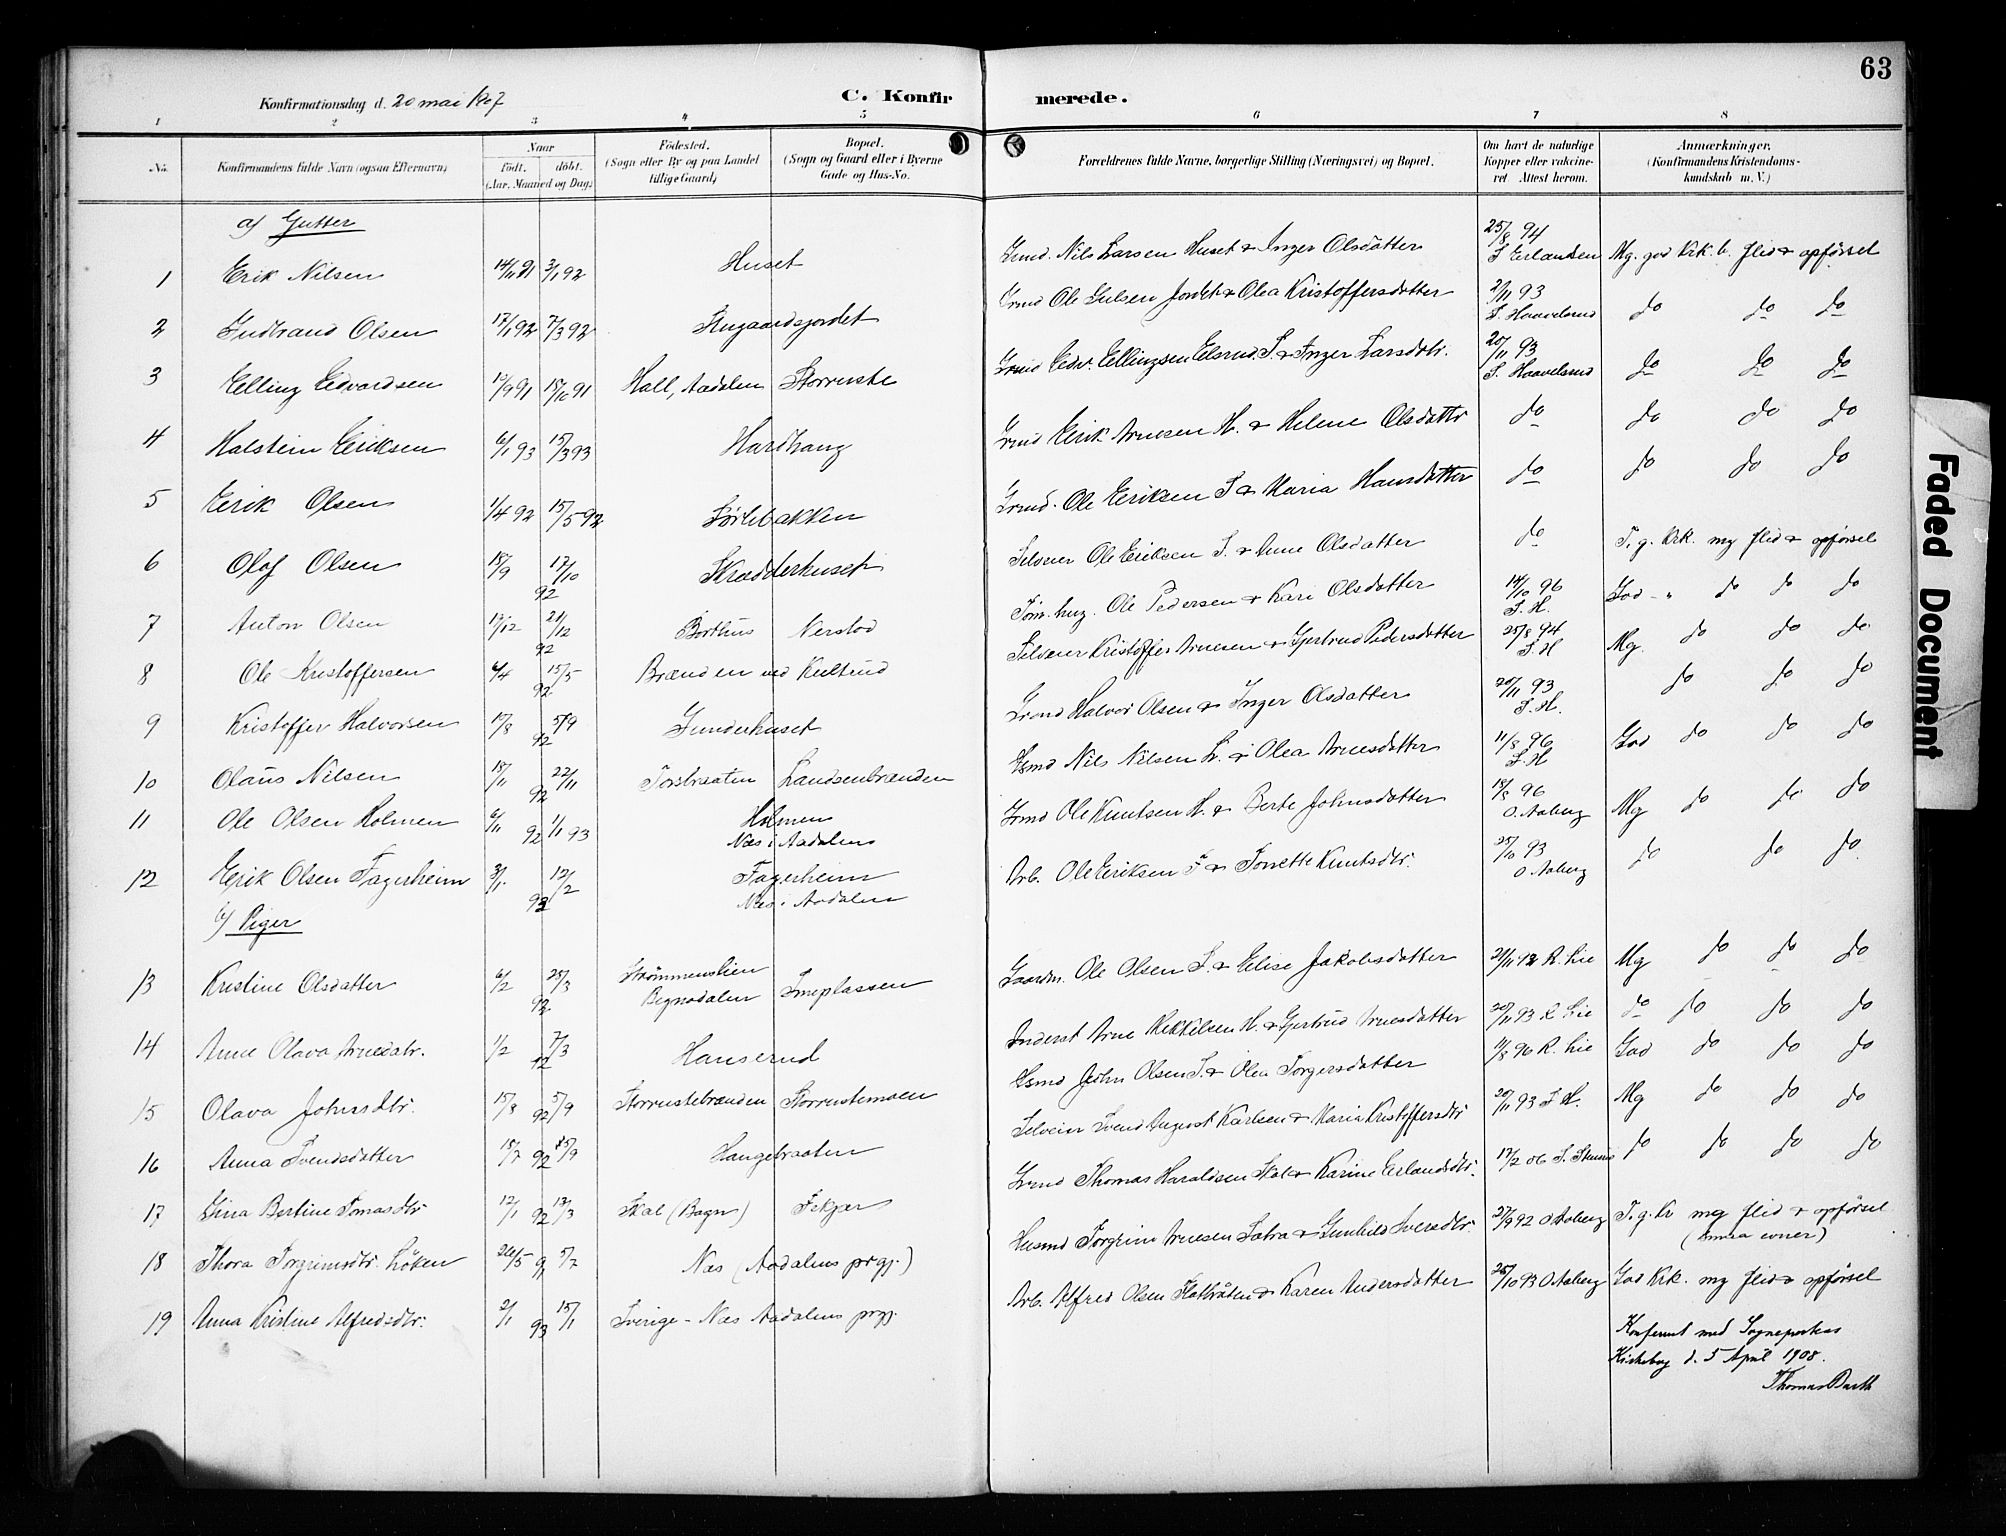 63
Konfirmationsdag d. 20 mai 1907
C. Konfirmerede.
1 2 3 4 5 6 7 8
No.
Konfirmandens fulde Navn (ogsaa Efternavn)
Naar
født. døbt.
(Aar, Maaned og Dag)
Fødested.
(Sogn eller By og paa Landet
tillige Gaard)
Bopæl.
(Sogn og Gaard eller i Byerne
Gade og Hus-No.
Forældrenes fulde Navne, borgerlige Stilling (Næringsvei) og Bopæl.
Om havt de naturlige
Kopper eller vaccine-
ret. Attest herom.
Anmærkninger.
(Konfirmandens Kristendoms-
kundskab m. V.)
a) Gutter
1 Erik Nilsen 14/11 91 3/1 92 Huset Grmd. Nils Larsen Huset & Inger Olsdatter 25/8 94 S Erlandsen Mg. god Krk. b. flid & opførsel
2 Gudbrand Olsen 17/1 92 7/3 92 Grmd Ole Jordet & Olea Kristoffersdatter 2/11 93 S. Haavelsrud do do do
3 Elling Edvardsen 12/9 91 15/10 91 Hall, Aadalen Storruste Grmd Edv. Ellingsen Elsrud S. & Inger Larsdtr. 20/11 93 S. Haavelsrud do do do
4 Halstein Eriksen 6/1 93 15/3 93 Hardhaug Grmd Erik Arnesen H. & Helene Olsdattr do do do do
5 Erik Olsen 1/4 92 15/5 92 Sørlebakken Grmd. Ole Eriksen S & Maria Hansdatter do do do do
6 Olof Olsen 18/9 17/10 92 Skrædderhuset Selveier Ole Eriksen S. & Anne Olsdatter do T. g. Krk. mg flid & opførsel
7 Anton Olsen 17/12 21/12 92 Børthus Nerstad Tøm. hug. Ole Pedersen & Kari Olsdatter 14/10 96 S. H. God do do do
8 Ole Kristoffersen 6/4 15/5 92 Brænden ved Kultrud Selveier Kristoffer Arnesen & Gjertrud Pedersdatter 25/8 94 S. H Mg. do do do
9 Kristoffer Halvorsen 15/8 5/9 92 Gunderhuset Grmd Halvor Olsen & Inger Olsdatter 20/11 93 S. H. do do do
10 Olaus Nilsen 18/11 22/11 92 Torsbraaten Landsenbrænden Hsmd Nils Nilsen L. & Olea Arnesdatter 11/8 96 S. H God do do do
11 Ole Olsen Holmen 6/11 92 1/1 93 Holmen
Næs i Aadalens Grmd Ole Knutsen H. & Berte Johnsdatter 18/8 96 O. Aaberg Mg do do do
12 Erik Olsen Fagerheim 3/1 12/2 93 Fagerheim
Næs i Aadalens Arb. Ole Eriksen F & Tonette Knutsdtr. 25/10 93 O. Aaberg do do do
b) Piger
13 Kristine Olsdatter 6/2 25/3 92 Strømmenslien
Begnadalen Smeplassen Gaardm. Ole Olsen S. & Elise Jakobsdatter 21/11 R. Lie Mg do do do
14 Anne Olava Arnesdtr. 1/2 7/3 92 Hanserud Inderst Arne Mikkelsen H. & Gjertrud Arnesdatter 20/11 93 R Lie do do do do
15 Olava Johnsdtr. 15/8 92 5/9 Storrustebrænden Storrustemoen Hsmd John Olsen S. & Olea Torgersdatter 11/8 96 R. Lie God do do do
16 Anna Svendsdatter 18/7 92 25/9 Haugebraaten Selveier Svend August Karlsen & Maria Kristoffersdtr 20/11 93 S H. Mg do do do
17 Gina Bertine Tomasdtr. 12/1 92 13/3 Skal (Bagn) Fekjær Grmd Thomas Haraldsen Skal & Karine Erlandsdtr. 17/2 06 do do do do
18 Thora Torgrimsdtr. Løken 26/5 91 5/7 Næs (Aadalens prgj.) Husmd Torgrim Arnesen Sætra & Gunhild Iversdtr. 27/9 92 O Aaberg T. g. Kr mg flid & opførsel
(smaa evner)
19 Anna Kristine Alfredsdtr. 2/1 93 15/1 Sverige – Næs Aadalens prgj. Arb. Alfred Olsen Flatbråten & Karen Andersdatter 25/10 93 O. Aaberg God Krk. mg flid & opførsel
Konferert med
d. 5 April 1908.
Thomas Barth
Faded Document